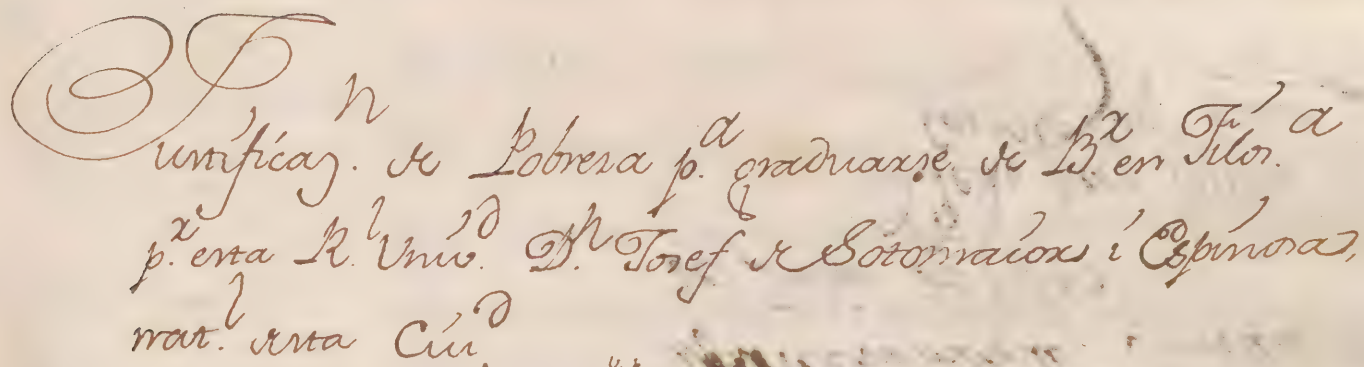 Justificaz.n de Pobreza p.a graduarse de B.r en Filos.a
p.r esta R.l Univ.d D.n Josef de Sotomaior i Espinosa,
nat.l desta Ciu.d